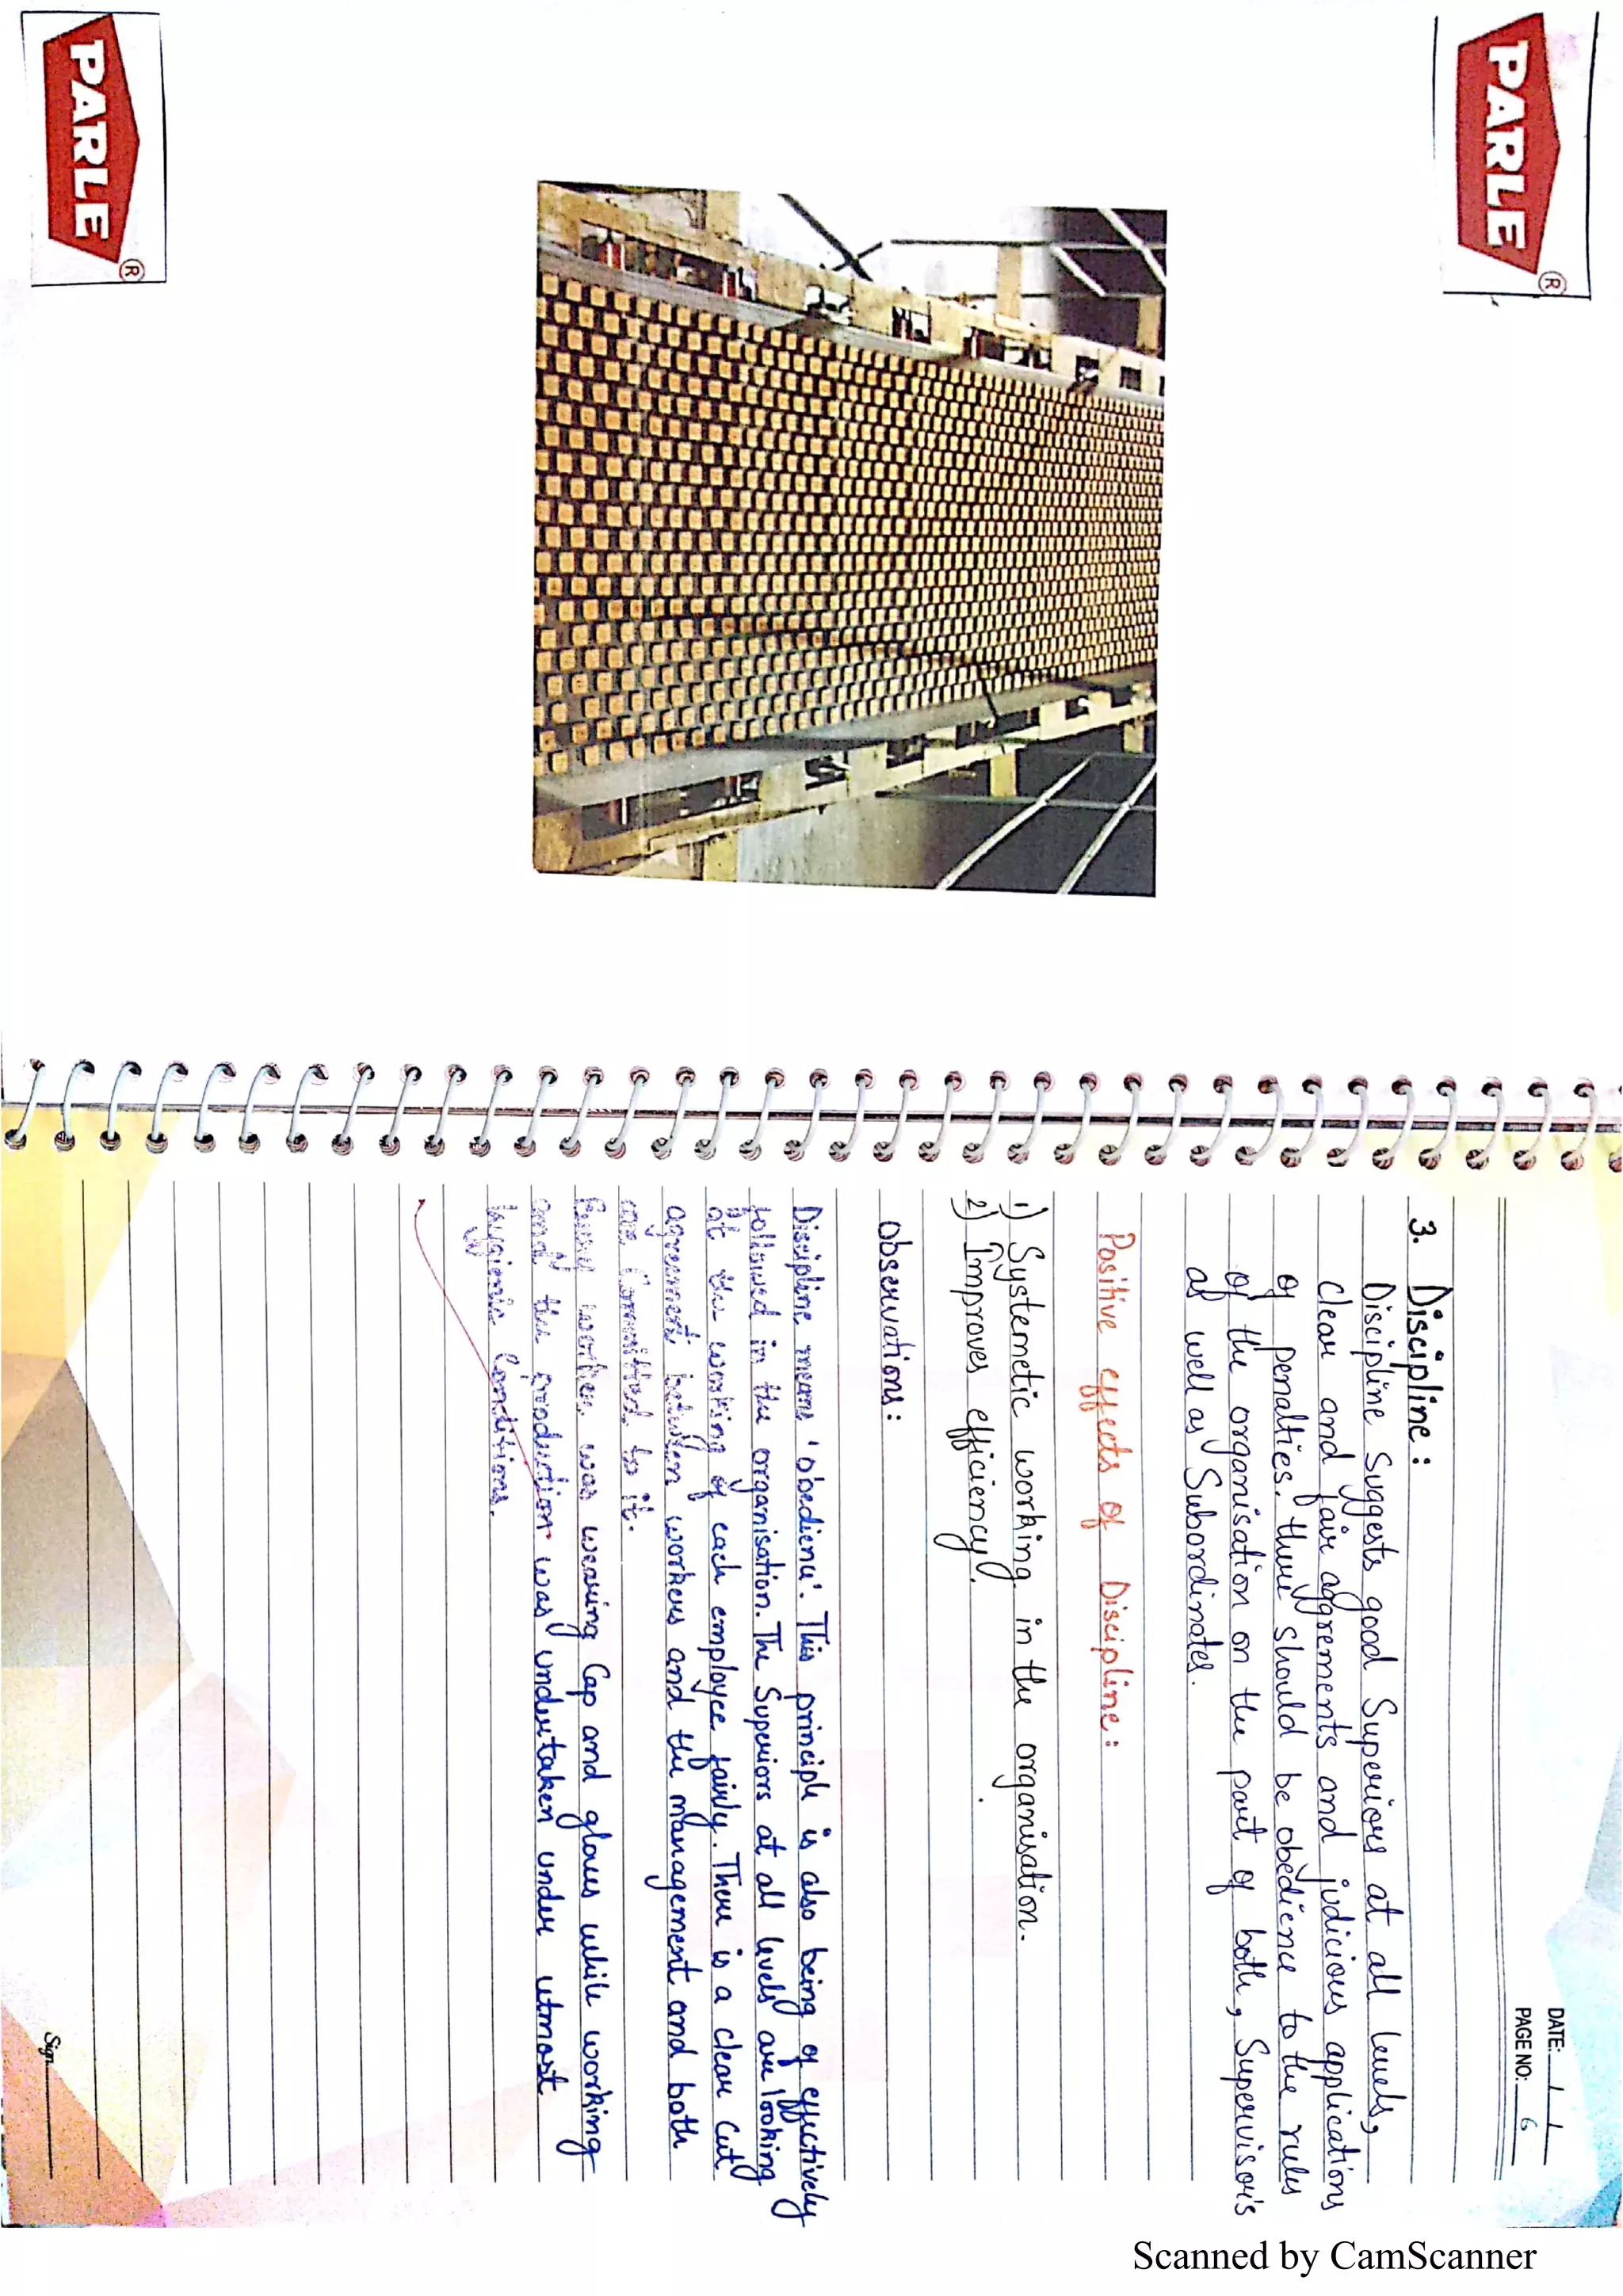 PARLE
®
PARLE
®
DATE: / /
PAGE NO: 6
3. Discipline :
Discipline Suggests good Superiors at all levels,
clear and fair aggrements and judicious applications
of penalties. there should be obedience to the rules
of the organisation on the part of both, Supervisors
as well as Subordinates.
Positive effects of Discipline :
1) Systemetic working in the organisation.
2) Improves efficiency.
Observations :
Discipline means 'obedience'. This principle is also being of effectively
followed in the organisation. The Superiors at all levels are looking
at the working of each employee fairly. There is a clear cut
agreement between workers and the management and both
are Committed to it.
Every worker was wearing Cap and gloves while working
and the production was undertaken under utmost
hygienic Conditions.
Sign
Scanned by CamScanner